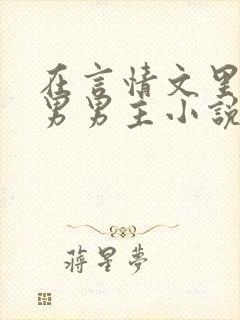 在言情文里
男男主小說
蔣星夢